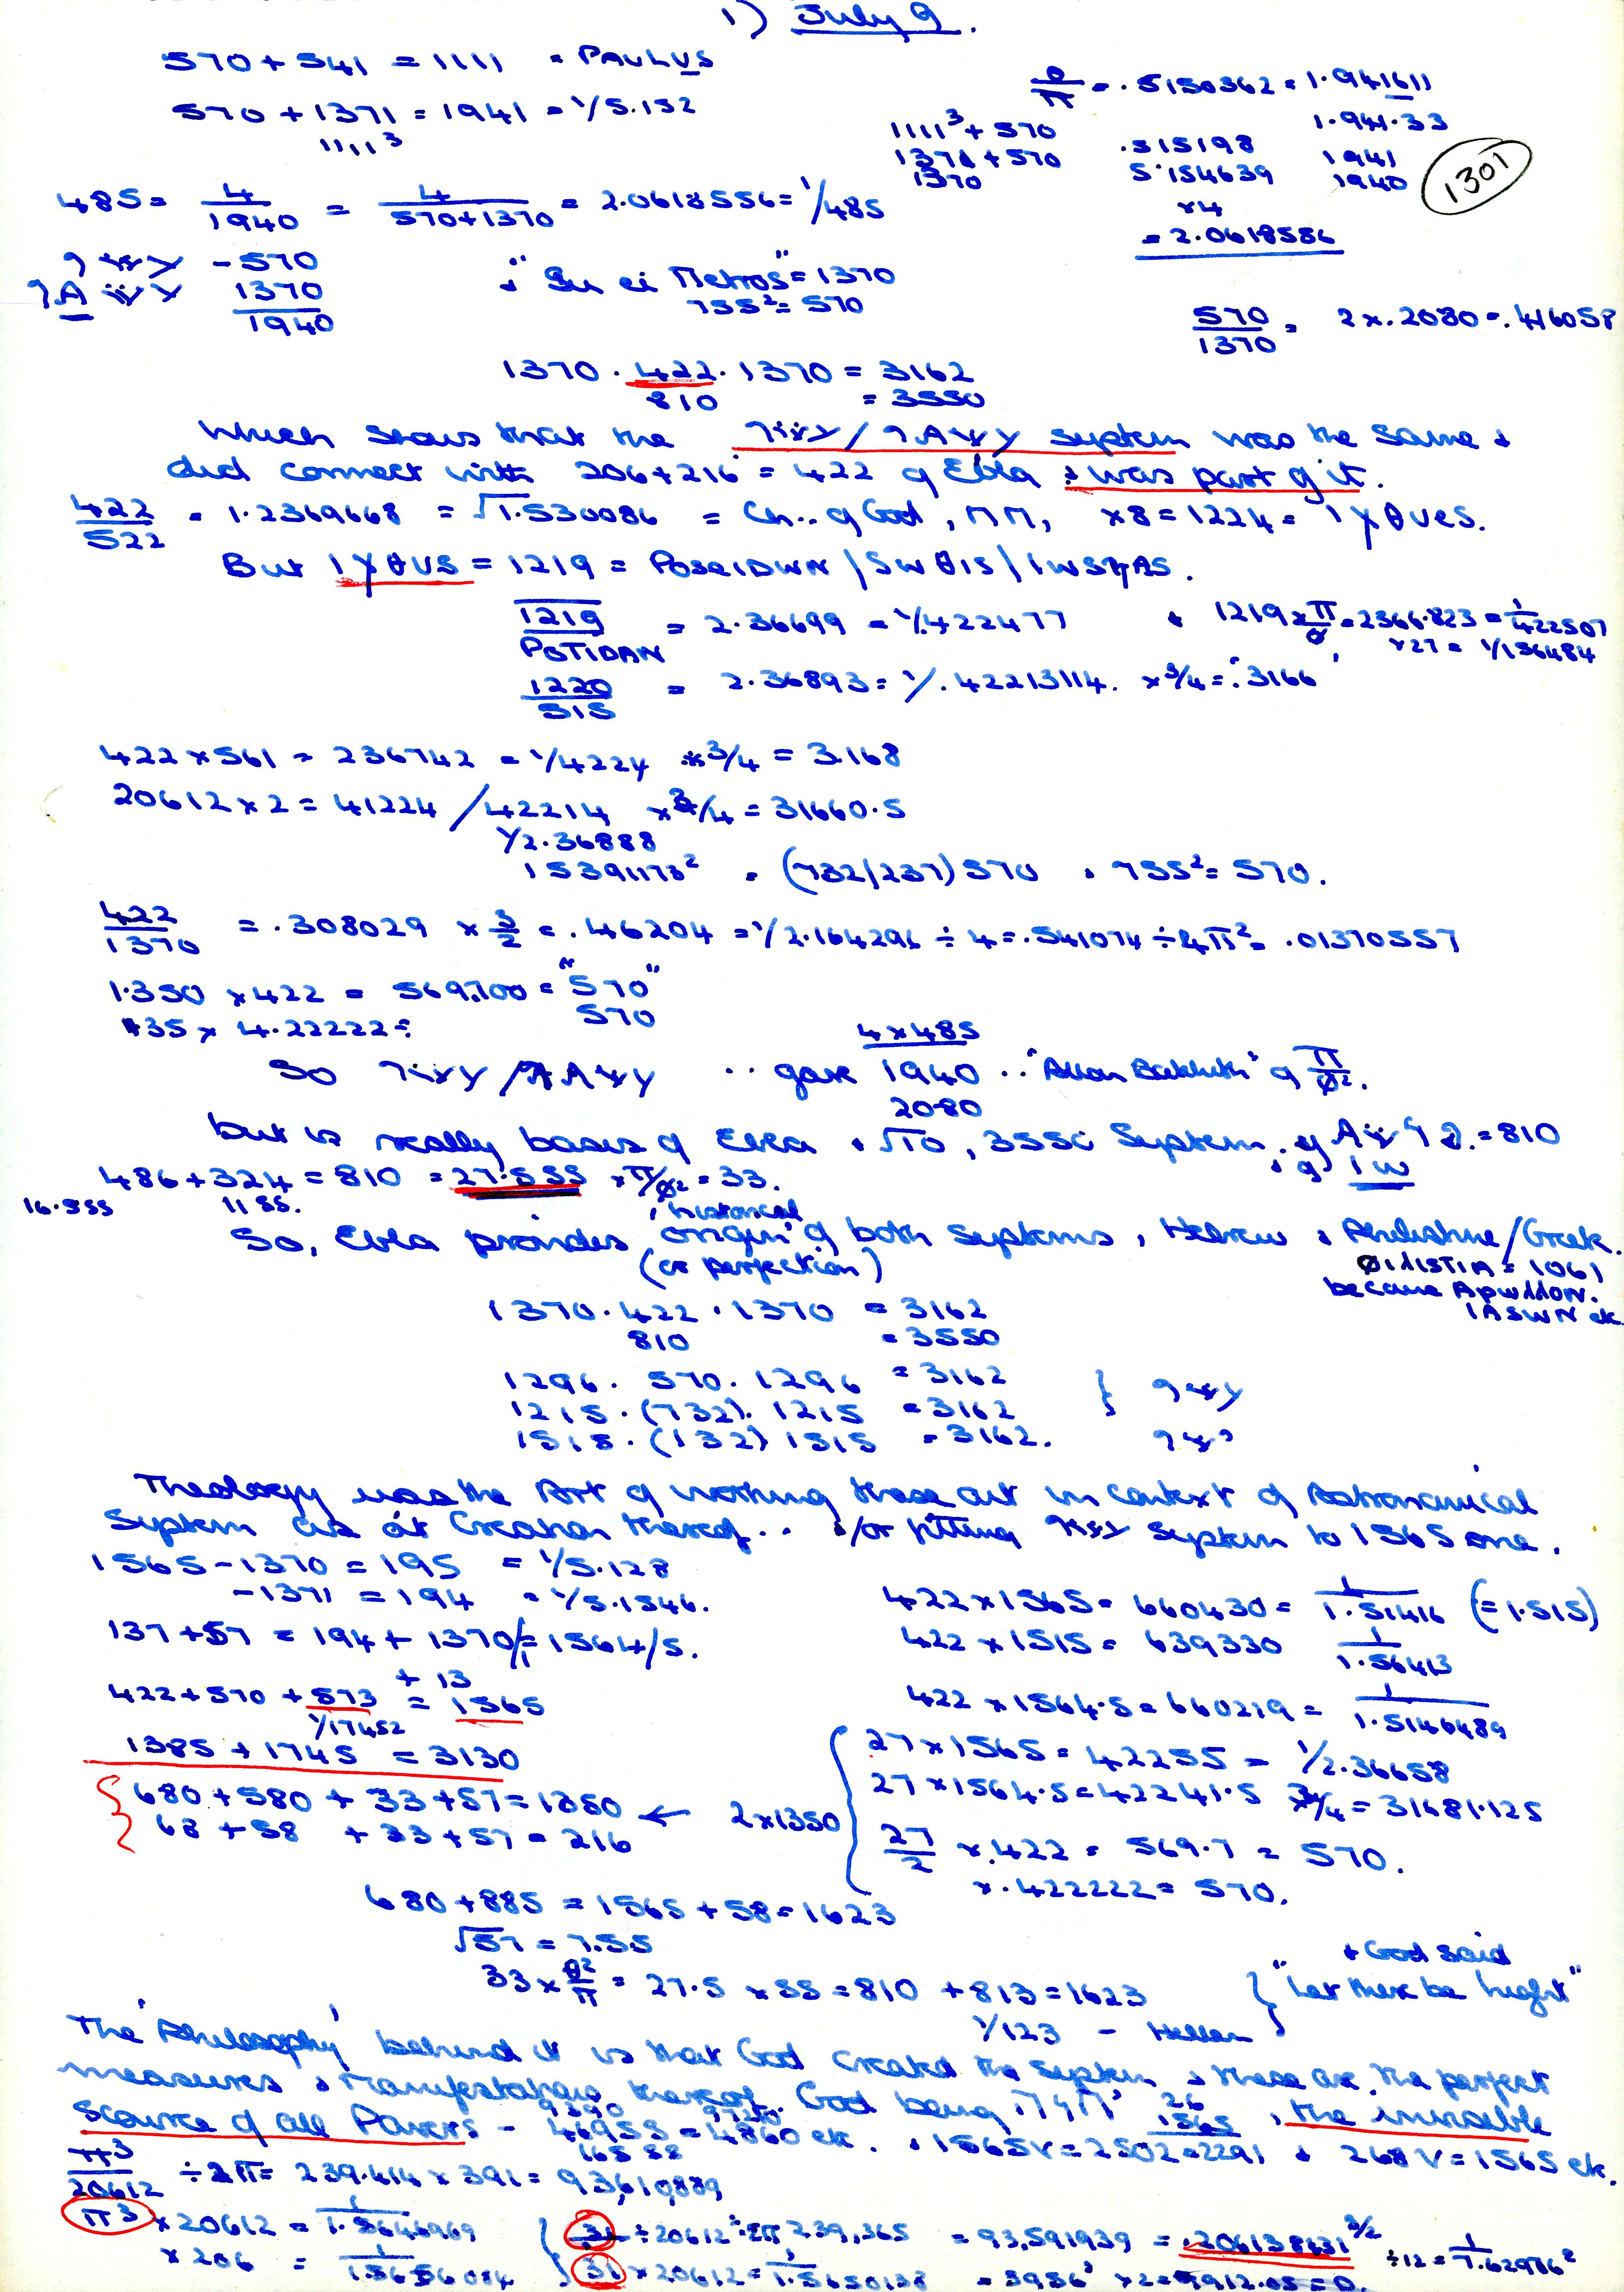 1) July 9.
570 + 541 = 1111 = PAULUS
570 + 1371 = 1941 = 1/5.152
1111³
Ø/π = .5150362 = 1.941611
1.941.33
1111³ + 570 .515198 1941
1371 + 570 5.154639 1940
1370
×4
= 2.0618556
1301
485 = 4/1940 = 4/(570+1370) = 2.0618556 = 1/485
- 570
1370
1940
"Su ei Petros" = 1370
755² = 570
570/1370 = 2 × .2080 = .416058
1370 . 422 . 1370 = 3162
810 = 3550
Which shows that the system was the same &
did connect with 206+216 = 422 of Ebla & was part of it.
422/522 = 1.2369668 = √1.530086 = Ch.. of God, ΠΠ, ×8 = 1224 = IXθues.
But IXθUS = 1219 = POSEIDWN / SWθIS / IWSHAS.
1219/POTIDAN = 2.36699 = 1/.422477 & 1219 × π/Ø = 2366.823 = 1/422507
×27 = 1/156484
1220/515 = 2.36893 = 1/.42213114. ×3/4 = .3166
422 × 561 = 236742 = 1/4224 ×3/4 = 3.168
20612 × 2 = 41224 / 42214 ×3/4 = 31660.5
1/2.36888
15391173² = (732/237) 570 & 755² = 570.
422/1370 = .308029 × 3/2 = .46204 = 1/2.164296 ÷ 4 = .541074 ÷ 4π² = .01370557
1.350 × 422 = 569,700 = "570"
135 × 4.22222 = 570
4 × 485
So .. gave 1940 .. "Allon Bakhuth" of π/Ø².
2080
but is really basis of Ebla & √10, 3550 System, of = 810
& of IW
486 + 324 = 810 = 27.555 × π/Ø² = 33.
16.555 11 55.
So, Ebla provides 'historical origin' of both systems, Hebrew & Philistine/Greek.
(or perfection)
ØIλISTIA = 1061
became Apwλλon.
IASWN etc.
1370 . 422 . 1370 = 3162
810 = 3550
1296 . 570 . 1296 = 3162
1215 . (732) . 1215 = 3162
1515 . (132) 1515 = 3162.
Theology was the Art of working these out in context of Astronomical
System as at Creation thereof .. &/or fitting system to 1565 one.
1565 - 1370 = 195 = 1/5.128
- 1371 = 194 = 1/5.1546.
137 + 57 = 194 + 1370/1 = 1564/5.
+ 13
422 + 570 + 573 = 1565
1/17452
1385 + 1745 = 3130
680 + 580 + 33 + 57 = 1350 ← 2×1350
68 + 58 + 33 + 57 = 216
422 × 1565 = 660430 = 1/1.51416 (=1.515)
422 × 1515 = 639330 1/1.56413
422 × 1564.5 = 660219 = 1/1.5146489
27 × 1565 = 42255 = 1/2.36658
27 × 1564.5 = 42241.5 ×3/4 = 31681.125
27/2 × .422 = 569.7 = 570.
× .422222 = 570.
680 + 885 = 1565 + 58 = 1623
√57 = 7.55
33 × Ø²/π = 27.5 × 55 = 810 + 813 = 1623
1/123 - Hellen
& God said
"Let there be light"
The 'Philosophy' behind it is that God created the system & these are the perfect
measures & manifestations thereof. God being 26 1565, the invisible
source of all Powers - 46955 = 4860 etc. & 1565V = 2502 = 2291 & 268V = 1565 etc.
π³/20612 ÷ 2π = 239.414 × 391 = 93,610,889
π³ × 20612 = 1/1.5646969
× 206 = 1/1.5656084
31 ÷ 20612 ÷ 2π 239,365 = 93,591939 = .206138431^3/2 ÷12 = 1/7.62976²
31 × 20612 = 1/1.5650138 = 3956' × 2 = 7912.05 = 0.